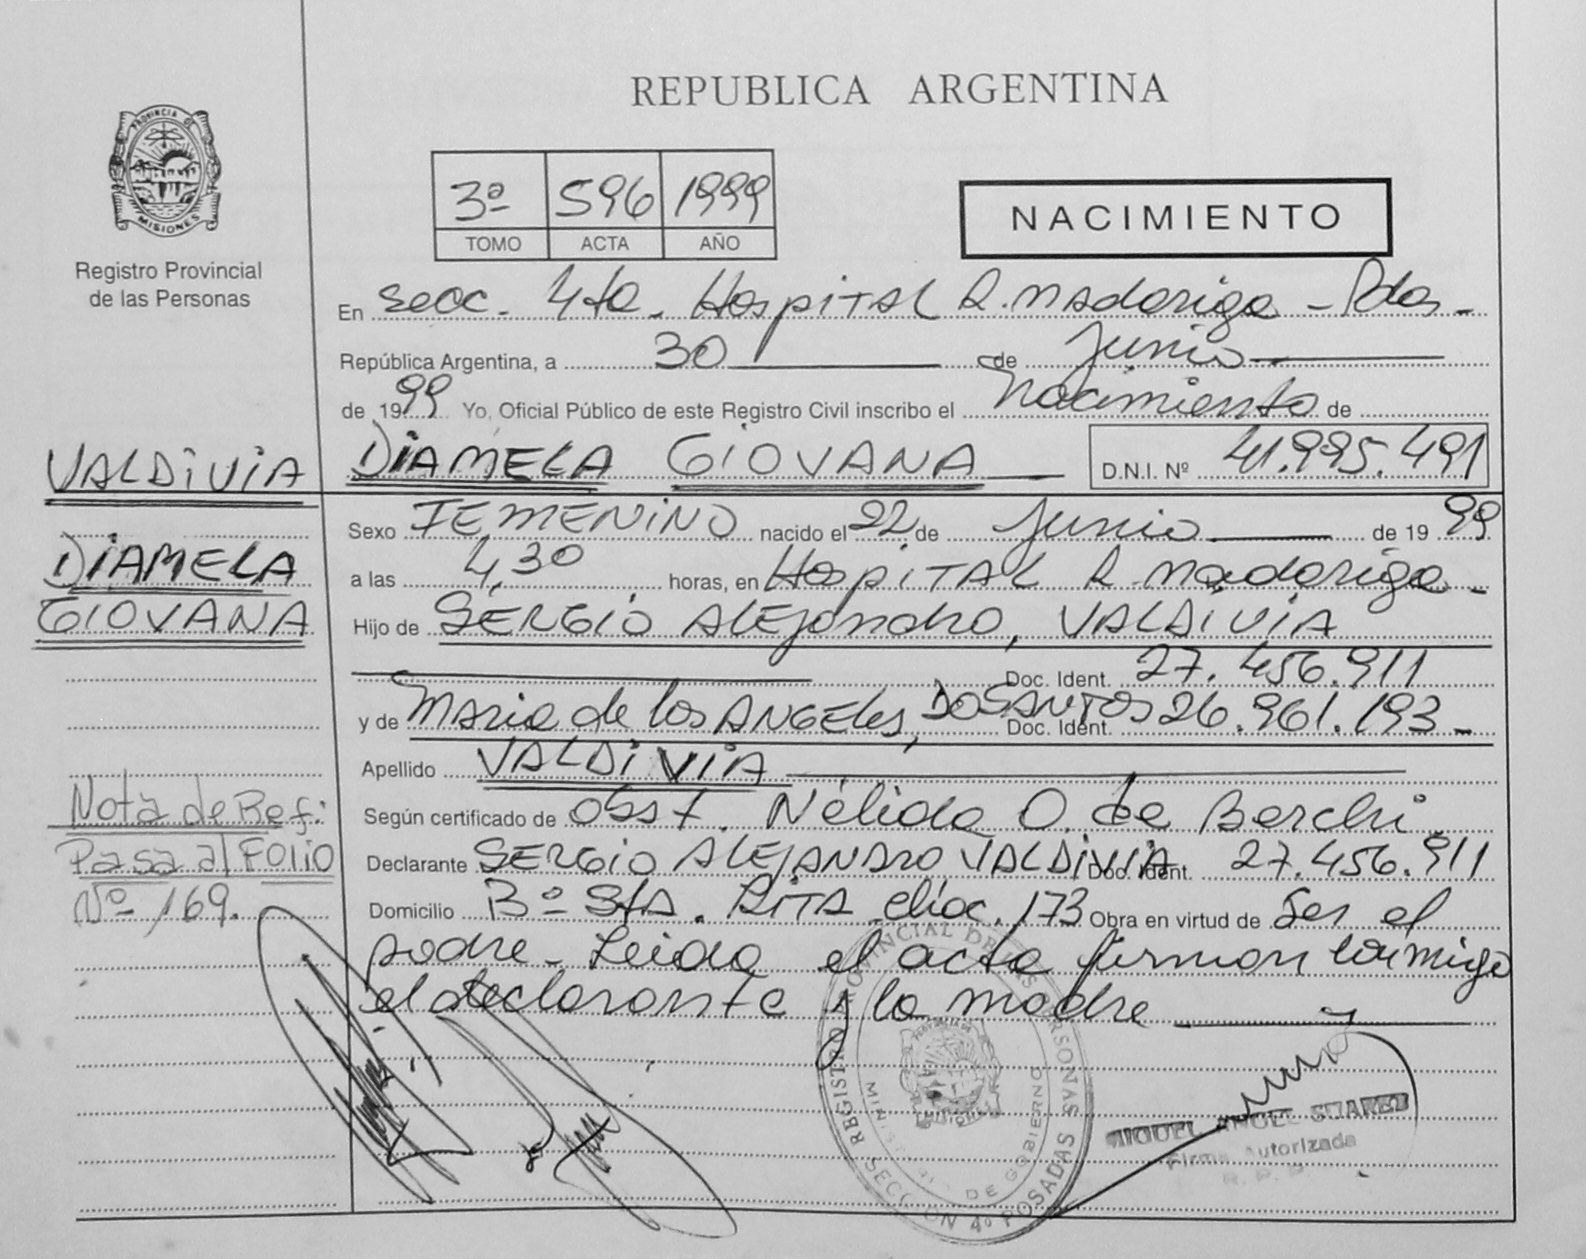 REPUBLICA ARGENTINA
PROVINCIA DE
MISIONES
Registro Provincial
de las Personas
3º 596 1999
TOMO ACTA AÑO
NACIMIENTO
En Secc. 4ta. Hospital R. Madariaga - Pdas -
República Argentina, a 30 de Junio
de 1999 Yo, Oficial Público de este Registro Civil inscribo el Nacimiento de
VALDIVIA DIAMELA GIOVANA D.N.I. Nº 41.995.491
Sexo FEMENINO nacido el 22 de Junio de 1999
DIAMELA
a las 4,30 horas, en Hospital R. Madariaga -
GIOVANA
Hijo de SERGIO ALEjandro, VALDIVIA
Doc. Ident. 27.456.911
y de Maria de los ANGEles, DOSANTOS Doc. Ident. 26.961.193 -
Apellido VALDIVIA
Nota de Ref:
Según certificado de Obst. Nélida O. de Berchi.
Pasa al Folio
Declarante SERGIO ALEJANDRO VALDIVIA Doc. Ident. 27.456.911
Nº 169.
Domicilio Bº Sta. RITA chac. 173 Obra en virtud de Ser el
padre - Leida el acta firman conmigo
el declarante y la madre
REGISTRO PROVINCIAL DE LAS PERSONAS
MINISTERIO DE GOBIERNO
SECCION 4º POSADAS
MIGUEL ANGEL SUAREZ
Firma Autorizada